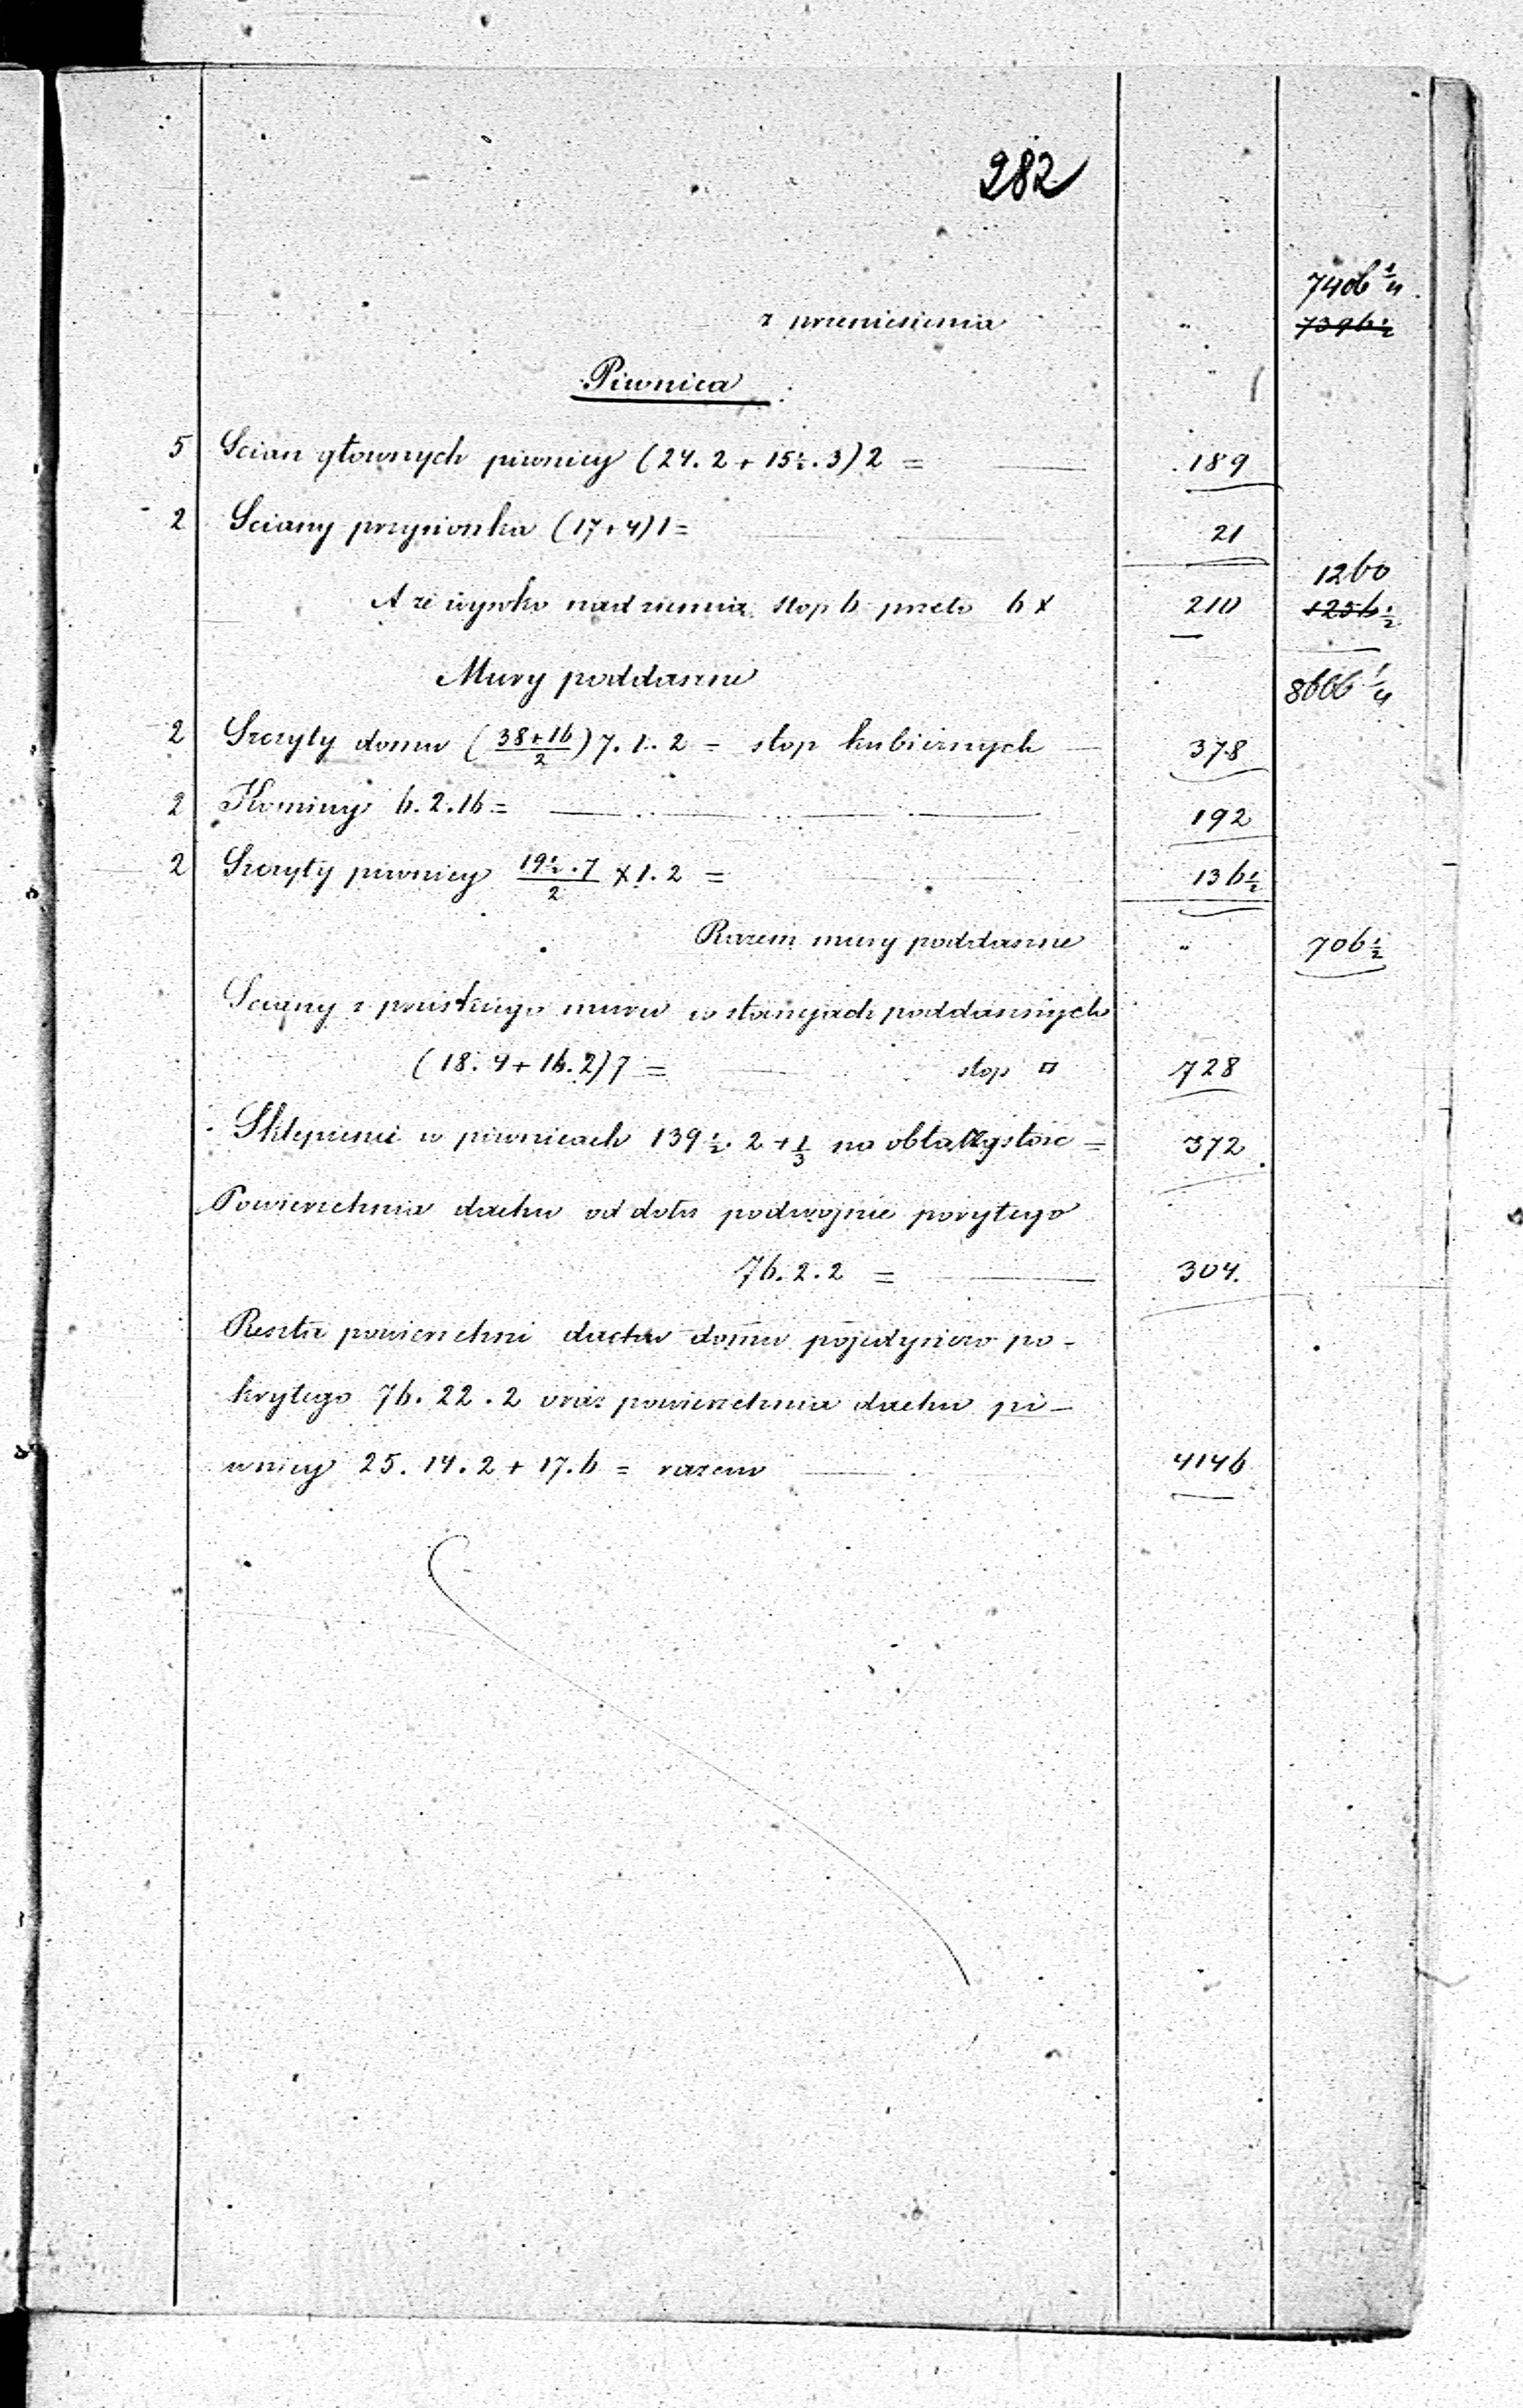 282
7406 1/4
z przeniesienia „ 7396 1/2
Piwnica „
5 Scian głownych piwnicy (24. 2 + 15 1/2. 3) 2 = 189
2 Sciany przysionka (17 + 4) 1 = 21
1260
A że wysoko nad ziemia stop 6 przeto 6 x 210 1256 1/2
Mury poddaszne 8666 1/4
2 Szczyty domu (38+16/2) 7. 1. 2 = stop kubicznych 378
2 Kominy 6. 2. 16 = 192
2 Szczyty piwnicy 19 1/2 . 7/2 x 1. 2 = 136 1/2
Razem mury poddaszne „ 706 1/2
Sciany z pruskiego muru w stancyach poddasznych
(18. 4 + 16. 2) 7 = stop □ 728
Sklepienie w piwnicach 139 1/2. 2 + 1/3 na obłączystość = 372
Powierzchnia dachu od dołu podwojnie porytego
76. 2. 2 = 304.
Reszta powierzchni dachu domu pojedynczo po-
krytego 76. 22. 2 oraz powierzchnia dachu pi-
wnicy 25. 14. 2 + 17. 6 = razem 4146